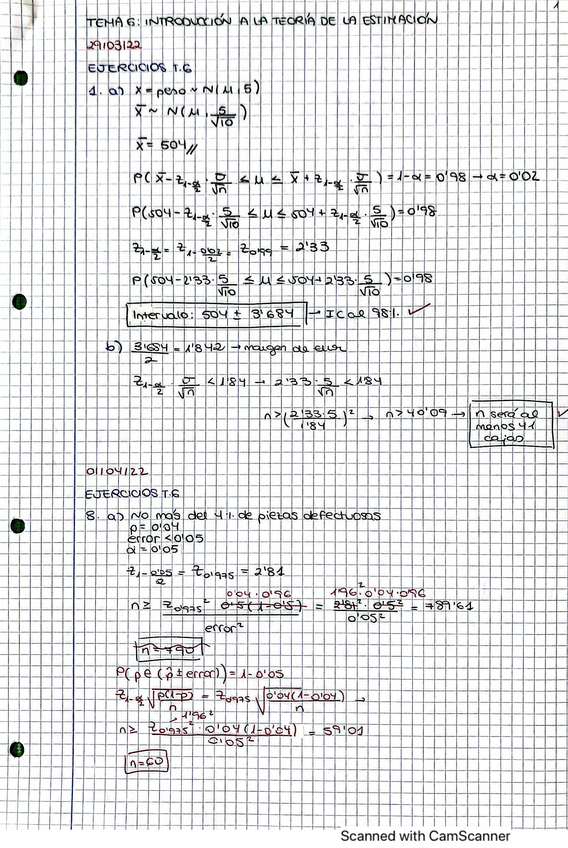 1
TEMA 6: INTRODUCCIÓN A LA TEORÍA DE LA ESTIMACIÓN
29/03/22
EJERCICIOS T.6
1. a) X = peso ~ N(μ, 5)
X̄ ~ N(μ, 5/√10)
X̄ = 504 //
P(X̄ - z₁₋α/₂ · σ/√n ≤ μ ≤ X̄ + z₁₋α/₂ · σ/√n) = 1-α = 0'98 → α = 0'02
P(504 - z₁₋α/₂ · 5/√10 ≤ μ ≤ 504 + z₁₋α/₂ · 5/√10) = 0'98
z₁₋α/₂ = z₁₋₀'₀₂/₂ = z₀'₉₉ = 2'33
P(504 - 2'33 · 5/√10 ≤ μ ≤ 504 + 2'33 · 5/√10) = 0'98
Intervalo: 504 ± 3'684 → IC al 98%. ✓
b) 3'684/2 = 1'842 → margen de error
z₁₋α/₂ · σ/√n < 1'84 → 2'33 · 5/√n < 1'84
n > (2'33·5/1'84)² → n > 40'09 → n será al menos 41 cajas ✓
01/04/22
EJERCICIOS T.6
8. a) No más del 4%. de piezas defectuosas
p = 0'04
error < 0'05
α = 0'05
z₁₋₀'₀₅/₂ = z₀'₉₇₅ = 2'81
0'04 · 0'96 1'96² · 0'04 · 0'96
n ≥ z₀'₉₇₅² · 0'5(1-0'5) / error² = 2'81² · 0'5² / 0'05² = 789'61
n = 790
P(p ∈ (p̂ ± error)) = 1 - 0'05
z₁₋α/₂ √(p(1-p)/n) = z₀'₉₇₅ √(0'04(1-0'04)/n) →
1'96²
n ≥ z₀'₉₇₅² · 0'04(1-0'04) / 0'05² = 59'01
n = 60
Scanned with CamScanner